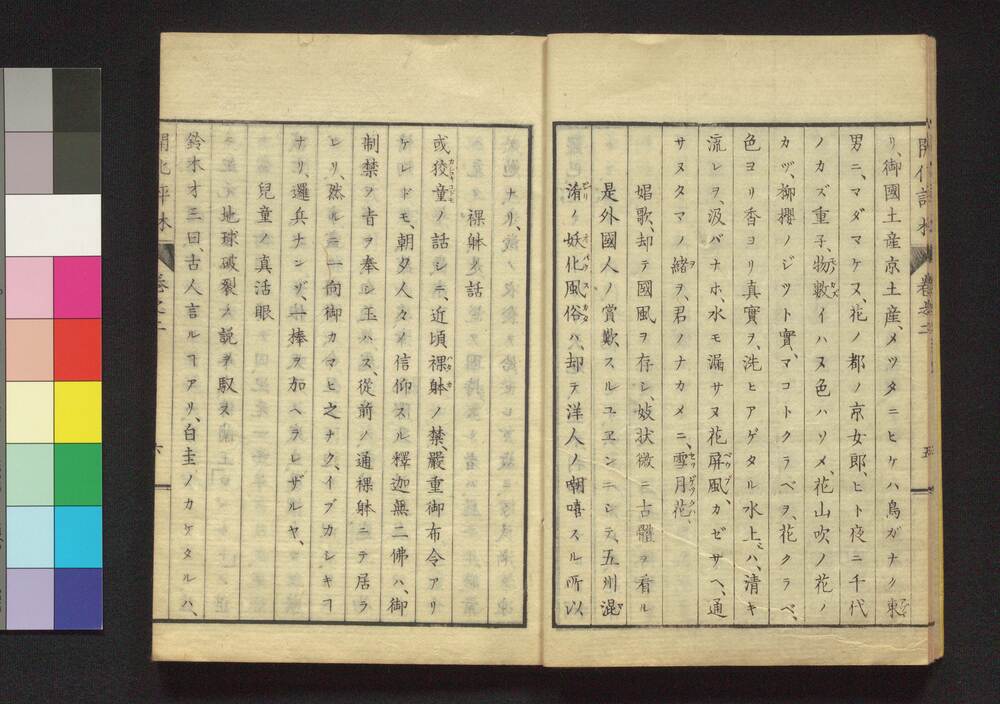 開化評林 卷之二 五
リ、御國土産京土産、メツタニヒケハ鳥ガナク東
男ニ、マダマケヌ、花ノ都ノ京女郎、ヒト夜ニ千代
ノカズ重子、物數イハヌ色ハソメ、花山吹ノ花ノ
カヅ、柳櫻ノジツト實、マコトクラベヲ、花クラベ、
色ヨリ香ヨリ真實ヲ、洗ヒアゲタル水上ハ、清キ
流レヲ、汲バナホ、水モ漏サヌ花屏風、カゼサヘ、通
サヌタマノ緒ヲ、君ノナカメニ、雪月花、
娼歌、却テ國風ヲ存シ、妓状微ニ古體ヲ看ル
是外國人ノ賞歎スルユヱンニシテ、五州混
淆ノ妖化風俗ハ、却テ洋人ノ嘲嘻スル所以
ナリ、
裸躰ノ話
或狡童ノ話シニ、近頃裸躰ノ禁、嚴重御布令アリ
ケレドモ、朝夕人々ノ信仰スル釋迦無二佛ハ、御
制禁ヲ肯ヲ奉シ玉ハス、從前ノ通裸躰ニテ居ラ
レリ、然ルニ一向御カマヒ之ナク、イブカシキヿ
ナリ、邏兵ナンゾ、一棒ヲ加ヘラレザルヤ、
兒童ノ真活眼
地球破裂ノ説ヲ馭ス
鈴木才三曰、古人言ルヿアリ、白圭ノカケタルハ、
開化評林 卷之二 六